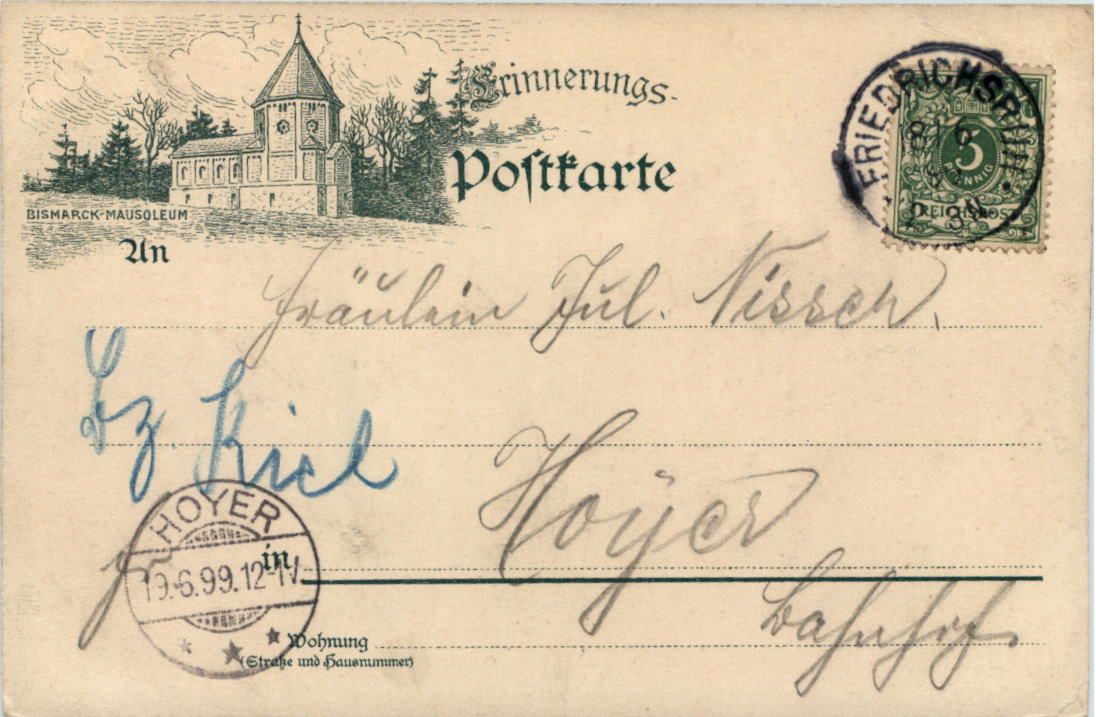 Erinnerungs-
Postkarte
BISMARCK-MAUSOLEUM
FRIEDRICHSRUH
3
PFENNIG
REICHSPOST
An
Fräulein Jul. Nissen,
Bz. Kiel
in
Hoyer
Bahnhof.
HOYER
19.6.99.12-1V.
Wohnung
(Straße und Hausnummer)